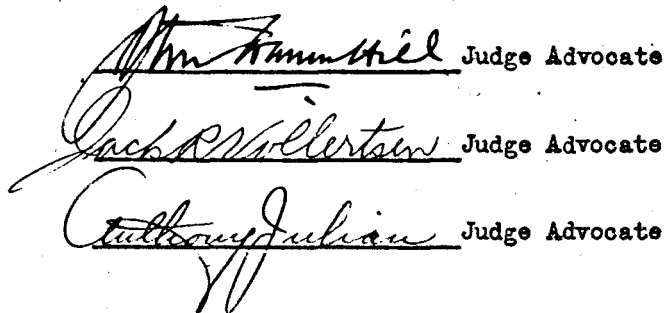 John Hill Judge Advocate
Jack R Vollertsen Judge Advocate
Anthony Julian Judge Advocate